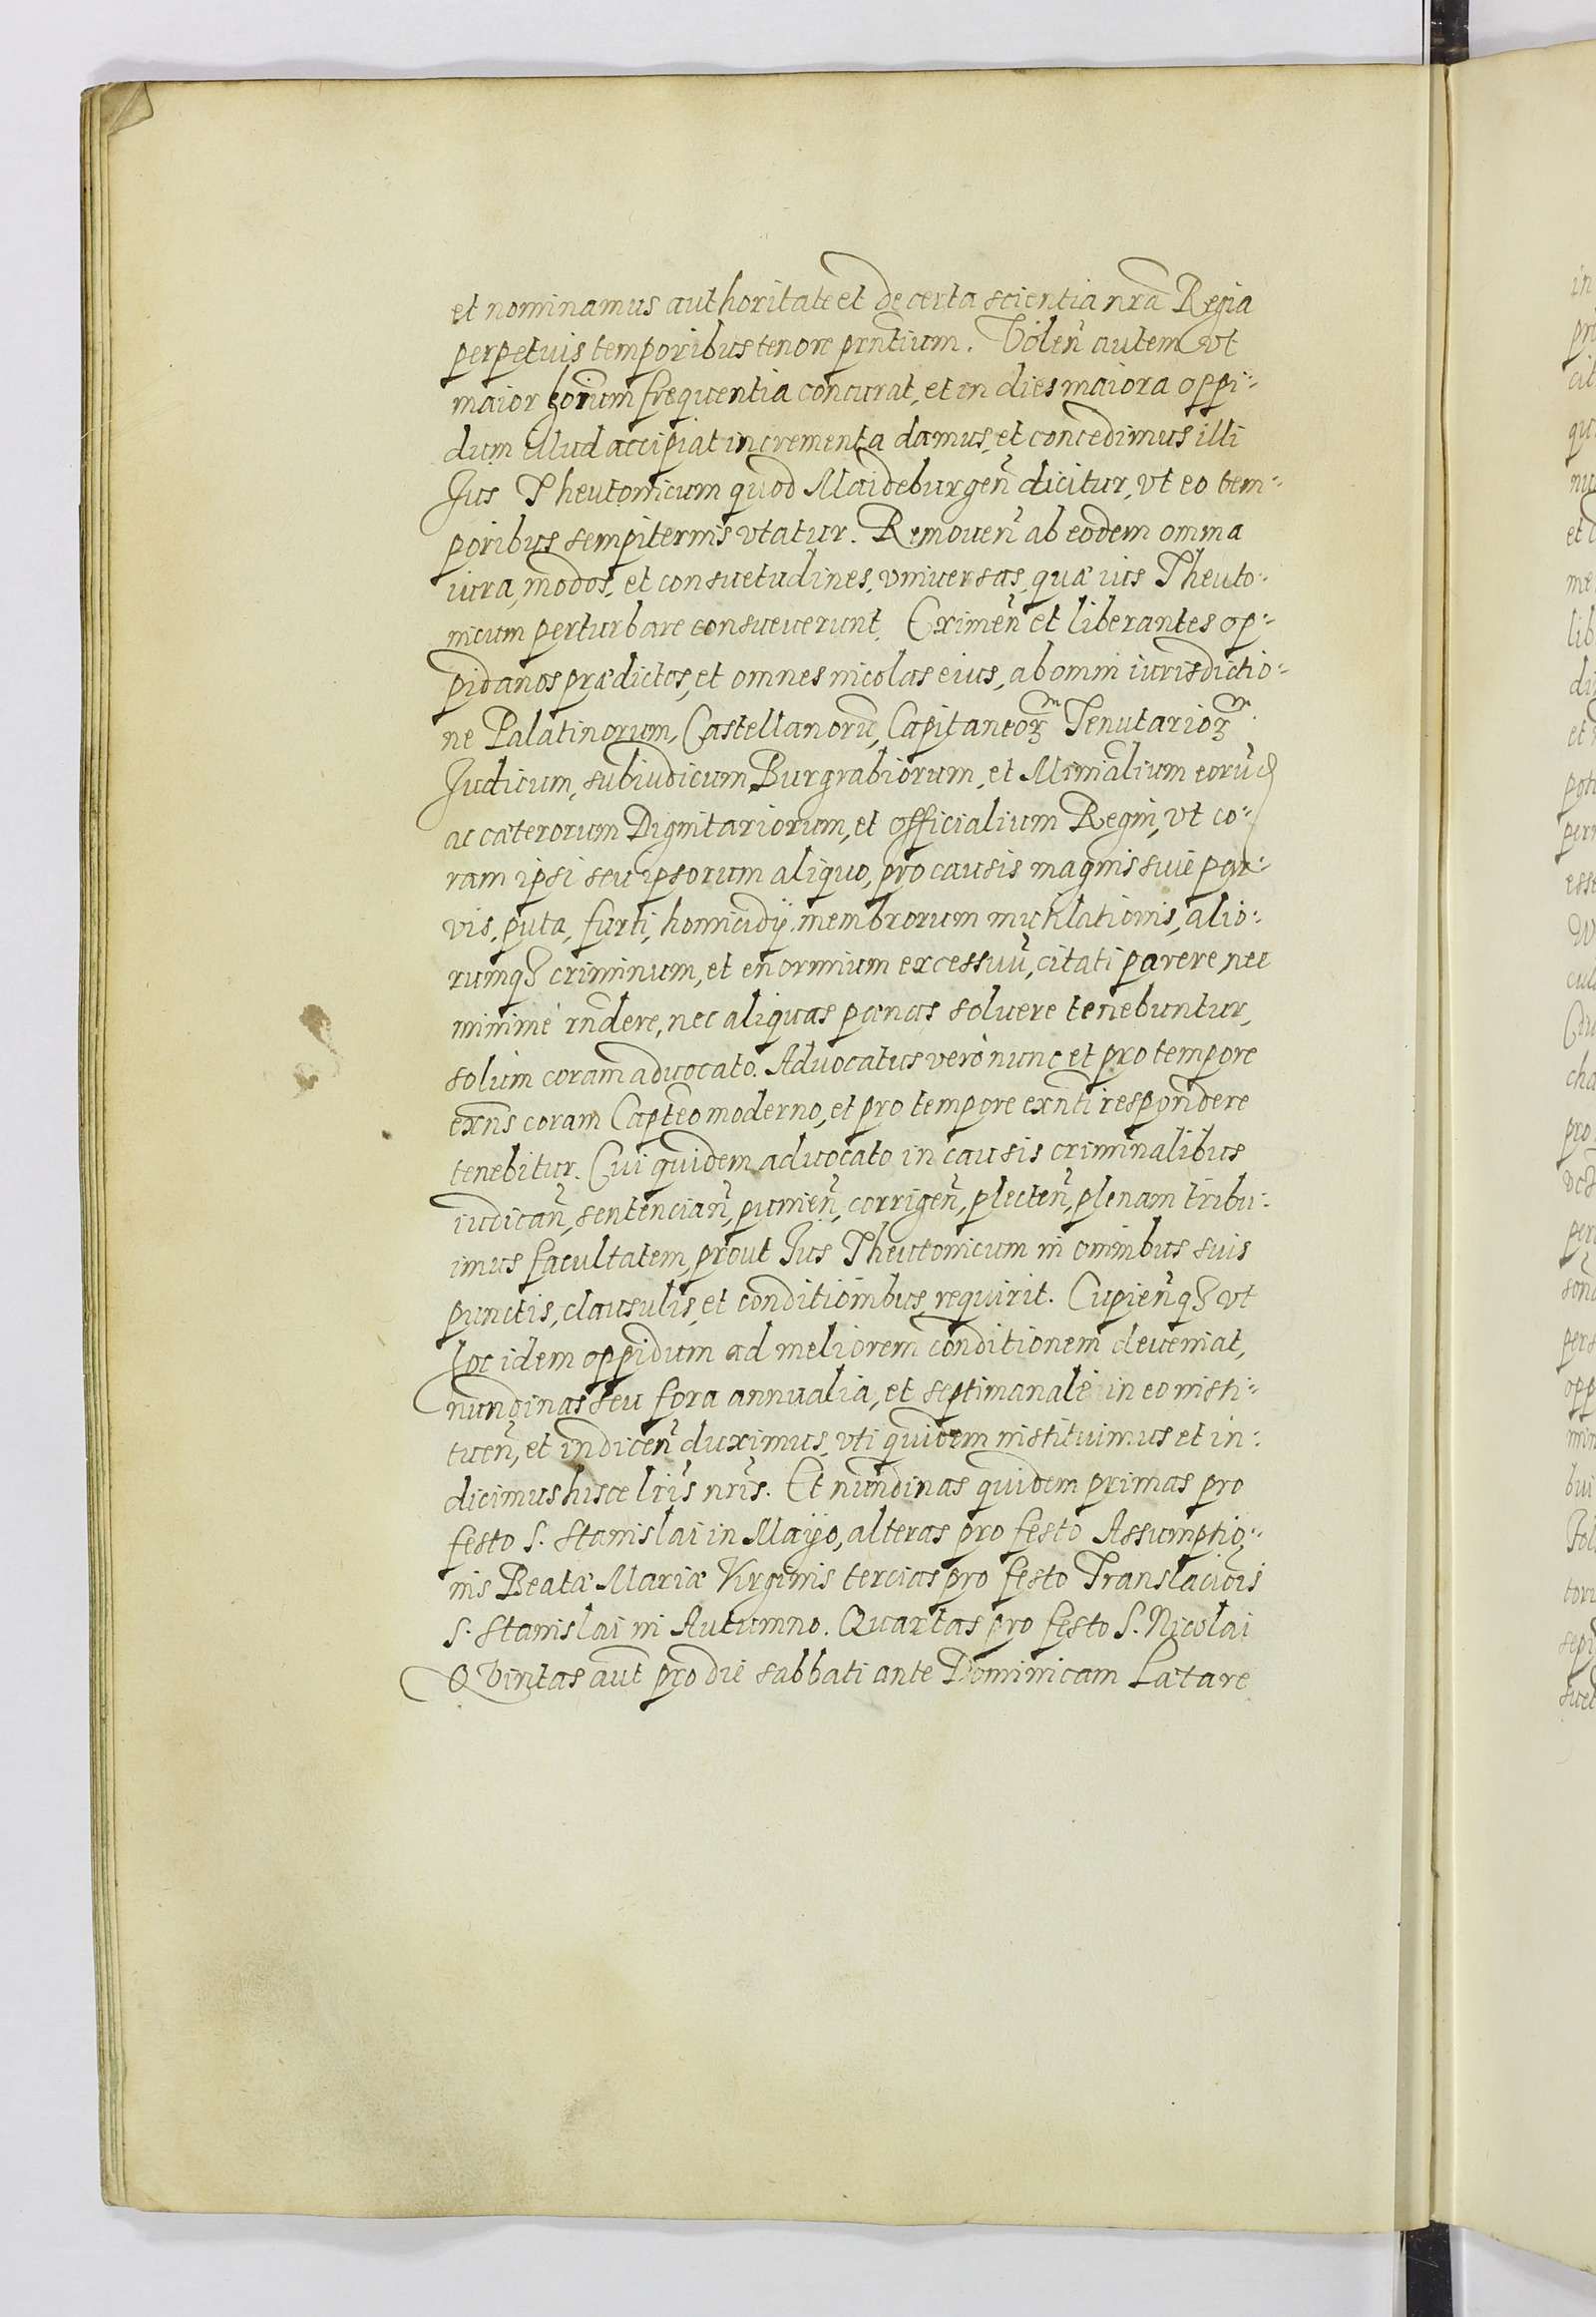 et nominamus authoritate et de certa scientia nrã Regia
perpetuis temporibus tenore prñtium. Volen̄ autem vt
maior hoium frequentia concurat, et in dies maiora oppi-
dum illud accipiat incrementa damus, et concedimus illi
Jus Theutonicum quod Maideburgen̄ dicitur, vt eo tem-
poribus sempiternis vtatur. Remouen̄ ab eodem omnia
iura, modos, et consuetudines, vniuersas, quæ ius Theuto-
nicum perturbare consueuerunt. Eximen̄ et liberantes op-
pidanos prædictos, et omnes incolas eius, ab omni iurisdictio-
ne Palatinorum, Castellanorũ, Capitaneorꝫm Tenutariorꝫm
Judicum, subiudicum Burgrabiorum, et Mimialium eorũd
ac cæterorum Dignitariorum, et officialium Regni, vt co-
ram ipsi seu ipsorum aliquo, pro causis magnis siue par-
vis, puta, furti, homicidij, membrorum mutilationis, alio-
rumqꝫ criminum, et enormium excessuũ, citati parere nec
minimè rñdere, nec aliquas pœnas soluere tenebuntur,
solùm coram aduocato. Aduocatus verò nunc et pro tempore
exñs coram Captẽo moderno, et pro tempore exñti respondere
tenebitur. Cui quidem aduocato in causis criminalibus
iudican̄, sentencian̄, punien̄, corrigen̄, plecten̄, plenam tribu-
imus facultatem, prout Jus Theutonicum in omnibus suis
punctis, clausulis, et conditionibus, requirit. Cupien̄qꝫ vt
hoc idem oppidum ad meliorem conditionem deueniat,
nundinas seu fora annualia, et septimanale in eo insti-
tuen̄, et indicen̄ duximus, vti quidem instituimus et in-
dicimus hisce lrĩs nrĩs. Et nundinas quidem primas pro
festo S. Stanislai in Mayo, alteras pro festo Assumptio-
nis Beatæ Mariæ Virginis tercias pro festo Translaciõis
S. Stanislai in Autumno. Quartas pro festo S. Nicolai
Quintas aut̃ pro die sabbati ante Dominicam Lætare